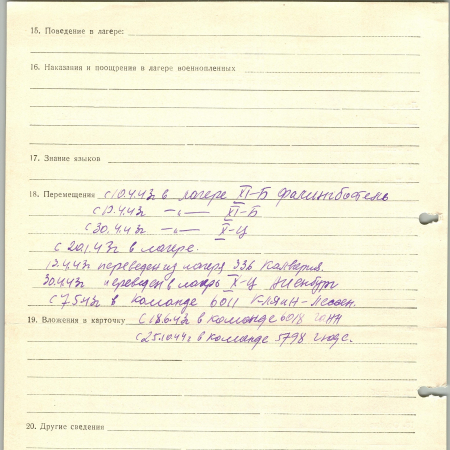 15. Поведение в лагере:
16. Наказания и поощрения в лагере военнопленных
17. Знание языков
18. Перемещения с 10.4.43г в лагере XI-Б Фалингбостель
с 19.4.43г —„— XI-Б
с 30.4.43г —„— X-Ц
с 20.1.43г в лагере.
13.4.43г переведен из лагеря 336 Калвария.
30.4.43г переведен в лагерь X-Ц Ниенбург
с 7.5.43г в команде 6011 Кляйн-Лессен.
19. Вложения в карточку с 18.6.43г в команде 6018
с 25.10.44г в команде 5798
20. Другие сведения